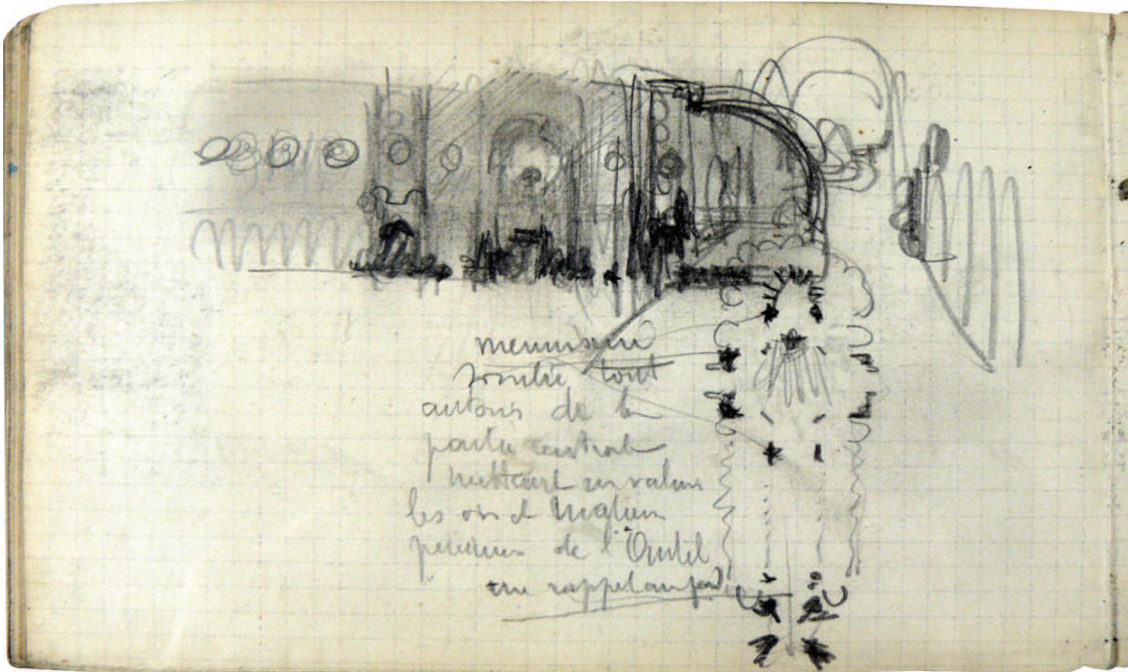 menuiserie
sombre tout
autour de la
partie centrale
mettant en valeur
les ors et
de l'Autel
un rappel au fond